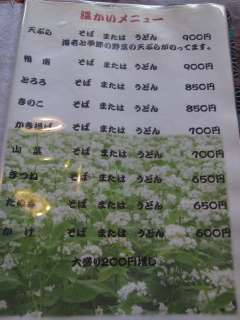 温かいメニュー
天ぷら そば または うどん 900円
海老と季節の野菜の天ぷらがのってます。
鴨南 そば または うどん 900円
とろろ そば または うどん 850円
きのこ そば または うどん 850円
かき揚げ そば または うどん 700円
山菜 そば または うどん 700円
きつね そば または うどん 650円
たぬき そば または うどん 650円
かけ そば または うどん 600円
大盛り200円増し